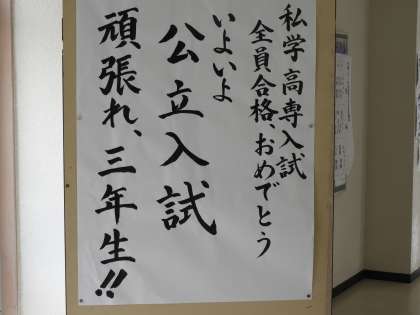 私学高専入試
全員合格、おめでとう
いよいよ
公立入試
頑張れ、三年生!!